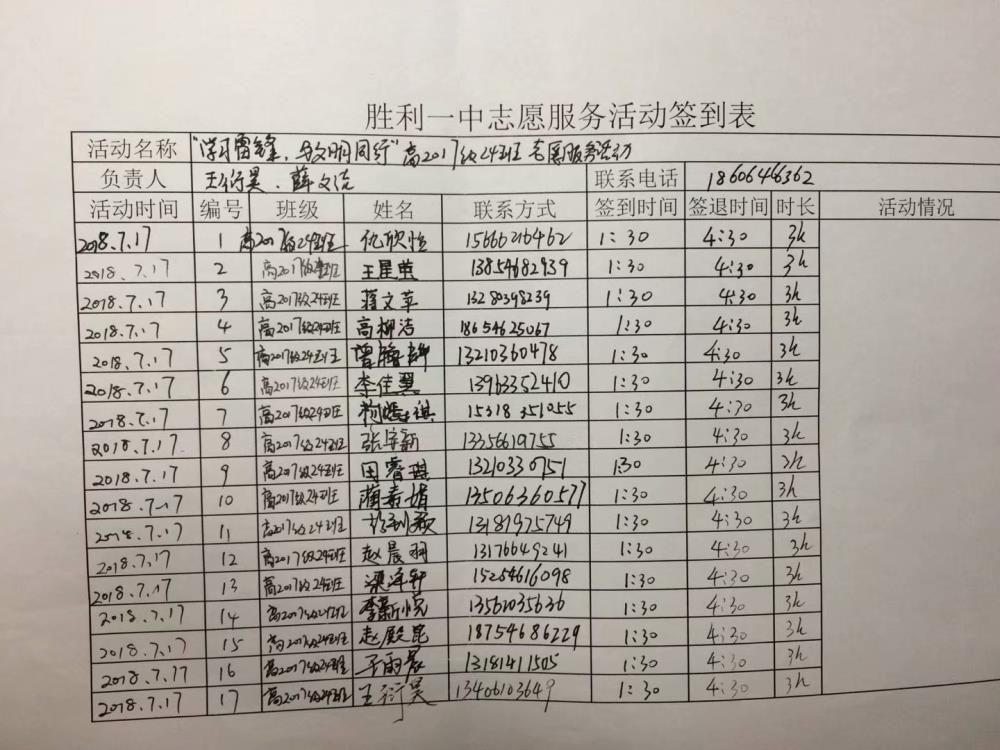 胜利一中志愿服务活动签到表
活动名称 "学习雷锋、与文明同行"高2017级24班志愿服务活动
负责人 王衍昊、薛文 联系电话 18606466362
活动时间 编号 班级 姓名 联系方式 签到时间 签退时间 时长 活动情况
2018.7.17 1 高2017级24班 仇欣怡 15666216462 1:30 4:30 3h
2018.7.17 2 高2017级24班 王星茧 13854682939 1:30 4:30 3h
2018.7.17 3 高2017级24班 蒋文苹 13280398239 1:30 4:30 3h
2018.7.17 4 高2017级24班 高柳洁 18654625067 1:30 4:30 3h
2018.7.17 5 高2017级24班 13210360478 1:30 4:30 3h
2018.7.17 6 高2017级24班 李佳翼 13963352410 1:30 4:30 3h
2018.7.17 7 高2017级24班 15318351055 1:30 4:30 3h
2018.7.17 8 高2017级24班 张宇新 13356619755 1:30 4:30 3h
2018.7.17 9 高2017级24班 田睿琪 13210330751 1:30 4:30 3h
2018.7.17 10 高2017级24班 13506360577 1:30 4:30 3h
2018.7.17 11 高2017级24班 13181975749 1:30 4:30 3h
2018.7.17 12 高2017级24班 赵晨羽 13176649241 1:30 4:30 3h
2018.7.17 13 高2017级24班 梁泽轩 15254616098 1:30 4:30 3h
2018.7.17 14 高2017级24班 李新悦 13562035636 1:30 4:30 3h
2018.7.17 15 高2017级24班 赵殿昆 18754686229 1:30 4:30 3h
2018.7.17 16 高2017级24班 雨晨 13181411505 1:30 4:30 3h
2018.7.17 17 高2017级24班 王衍昊 13406103649 1:30 4:30 3h